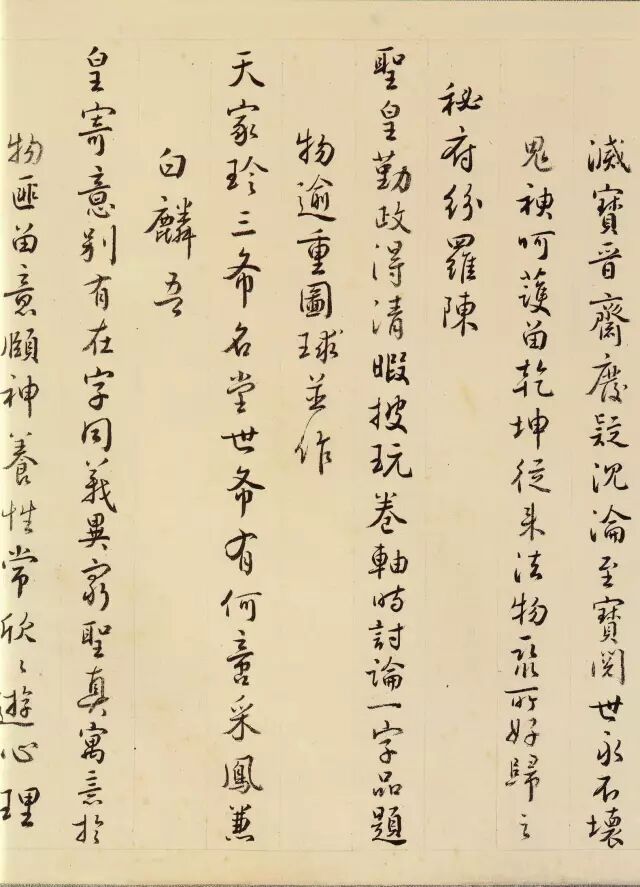 滅寶晉齋廢疑沉淪至寶閱世永不壞
鬼神呵護留乾坤從来法物聚所好歸之
秘府紛羅陳
聖皇勤政得清暇披玩卷軸時討論一字品題
物逾重圖球並作
天家珍三希名堂世希有何啻采鳳兼
白麟吾
皇寄意别有在字同義異窮聖真寓意於
物匪留意頤神養性常欣〻遊心理